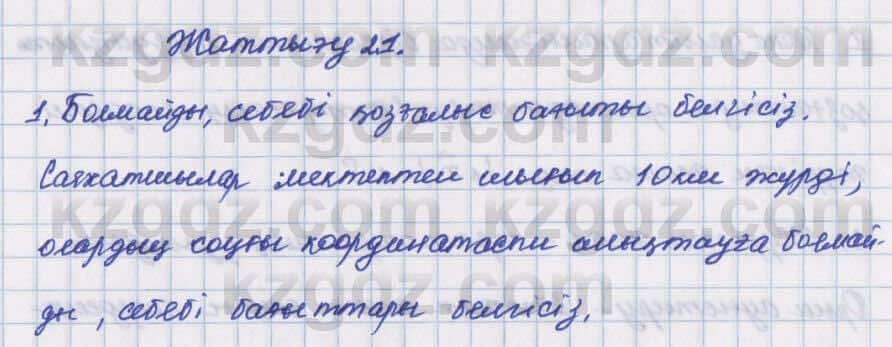 Жаттығу 21.
1. Болмайды, себебі қозғалыс бағыты белгісіз.
Саяхатшылар мектептен шығып 10 км жүрді,
олардың соңғы координатасын анықтауға болмай-
ды, себебі бағыттары белгісіз.
kzgdz.com